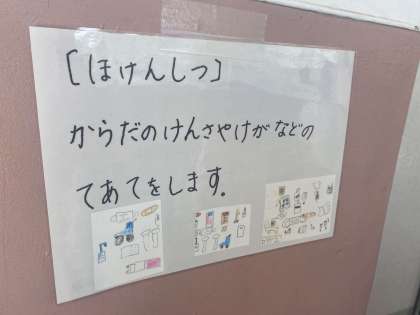 ［ほけんしつ］
からだのけんさやけがなどの
てあてをします.